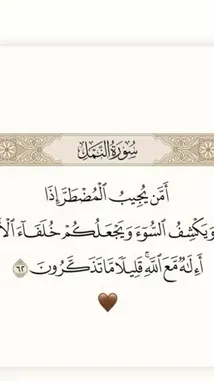 سُورَةُ النَّمْلِ
أَمَّن يُجِيبُ الْمُضْطَرَّ إِذَا
وَيَكْشِفُ السُّوٓءَ وَيَجْعَلُكُمْ خُلَفَآءَ
أَءِلَٰهٌ مَّعَ اللَّهِ ۚ قَلِيلًا مَّا تَذَكَّرُونَ ٦٢